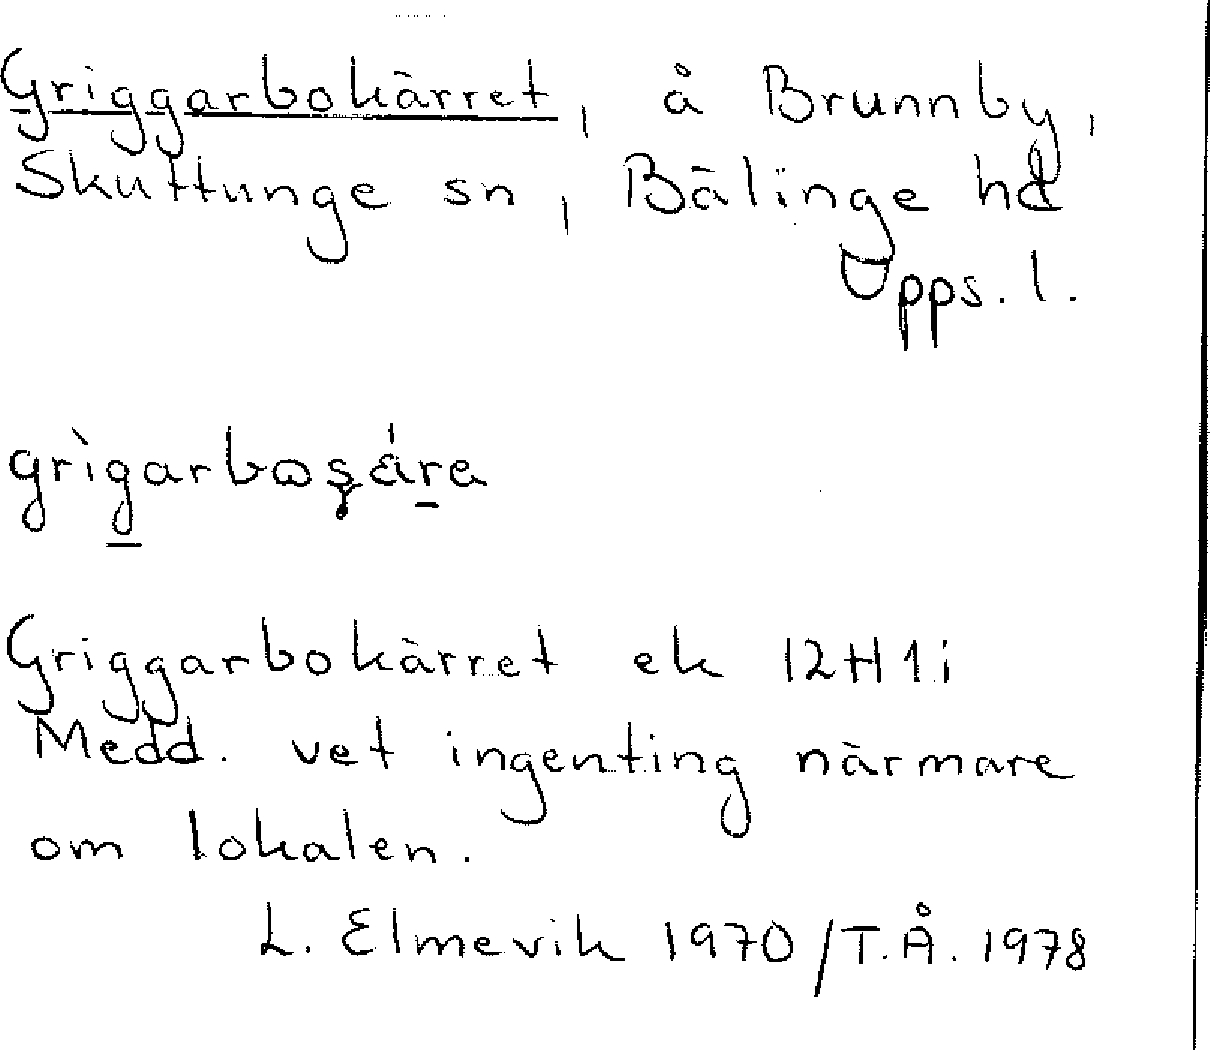 Griggarbokärret, å Brunnby,
Skuttunge sn, Bälinge hd
Upps. l.
grìgarbꞷʂára
Griggarbokärret ek 12H1i
Medd. vet ingenting närmare
om lokalen.
L. Elmevik 1970/T.Å. 1978